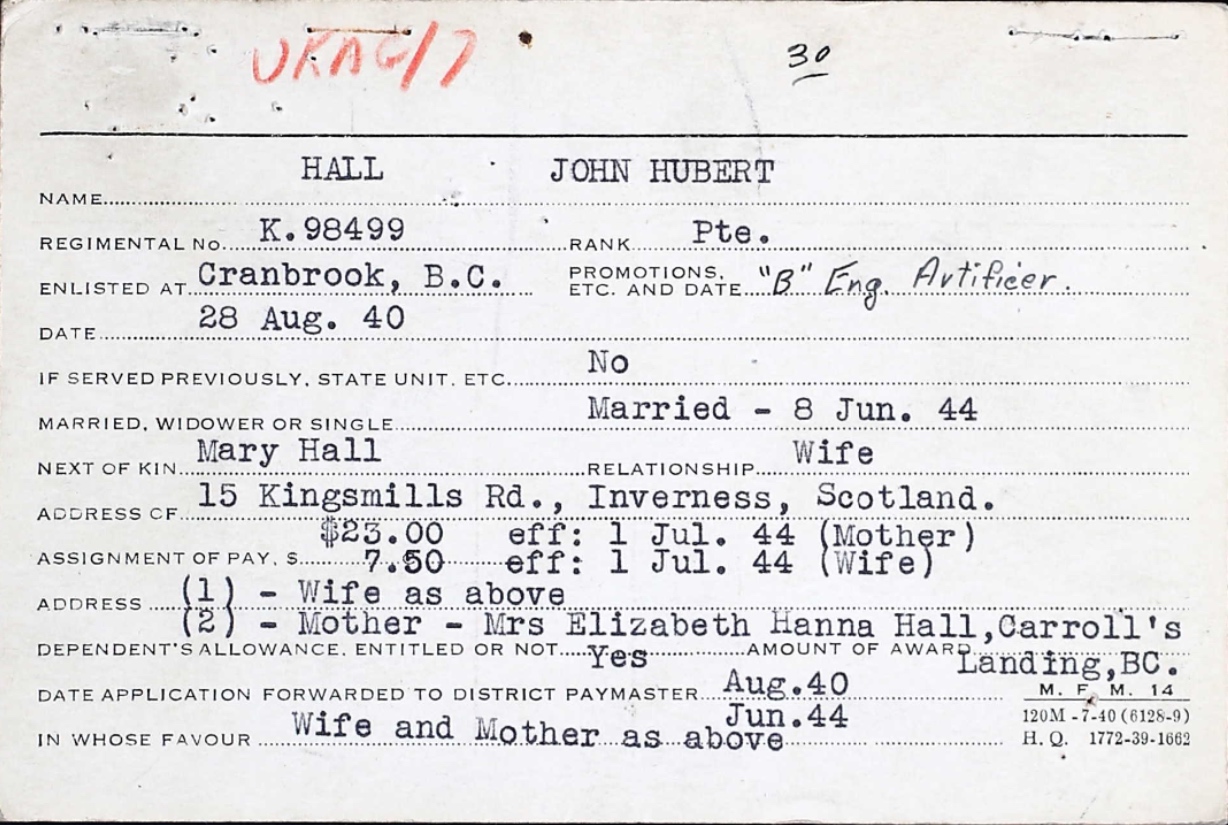 UKAG/7
30
HALL JOHN HUBERT
NAME
REGIMENTAL No. K.98499 RANK Pte.
ENLISTED AT Cranbrook, B.C. PROMOTIONS, ETC. AND DATE "B" Eng. Artificer.
DATE 28 Aug. 40
IF SERVED PREVIOUSLY, STATE UNIT, ETC. No
MARRIED, WIDOWER OR SINGLE Married - 8 Jun. 44
NEXT OF KIN Mary Hall RELATIONSHIP Wife
ADDRESS OF 15 Kingsmills Rd., Inverness, Scotland.
$23.00 eff: 1 Jul. 44 (Mother)
ASSIGNMENT OF PAY, $ 7.50 eff: 1 Jul. 44 (Wife)
ADDRESS (1) - Wife as above
(2) - Mother - Mrs Elizabeth Hanna Hall,Carroll's
DEPENDENT'S ALLOWANCE, ENTITLED OR NOT Yes AMOUNT OF AWARD Landing,BC.
DATE APPLICATION FORWARDED TO DISTRICT PAYMASTER Aug.40
Jun.44
IN WHOSE FAVOUR Wife and Mother as above
M. F. M. 14
120M-7-40 (6128-9)
H. Q. 1772-39-1662